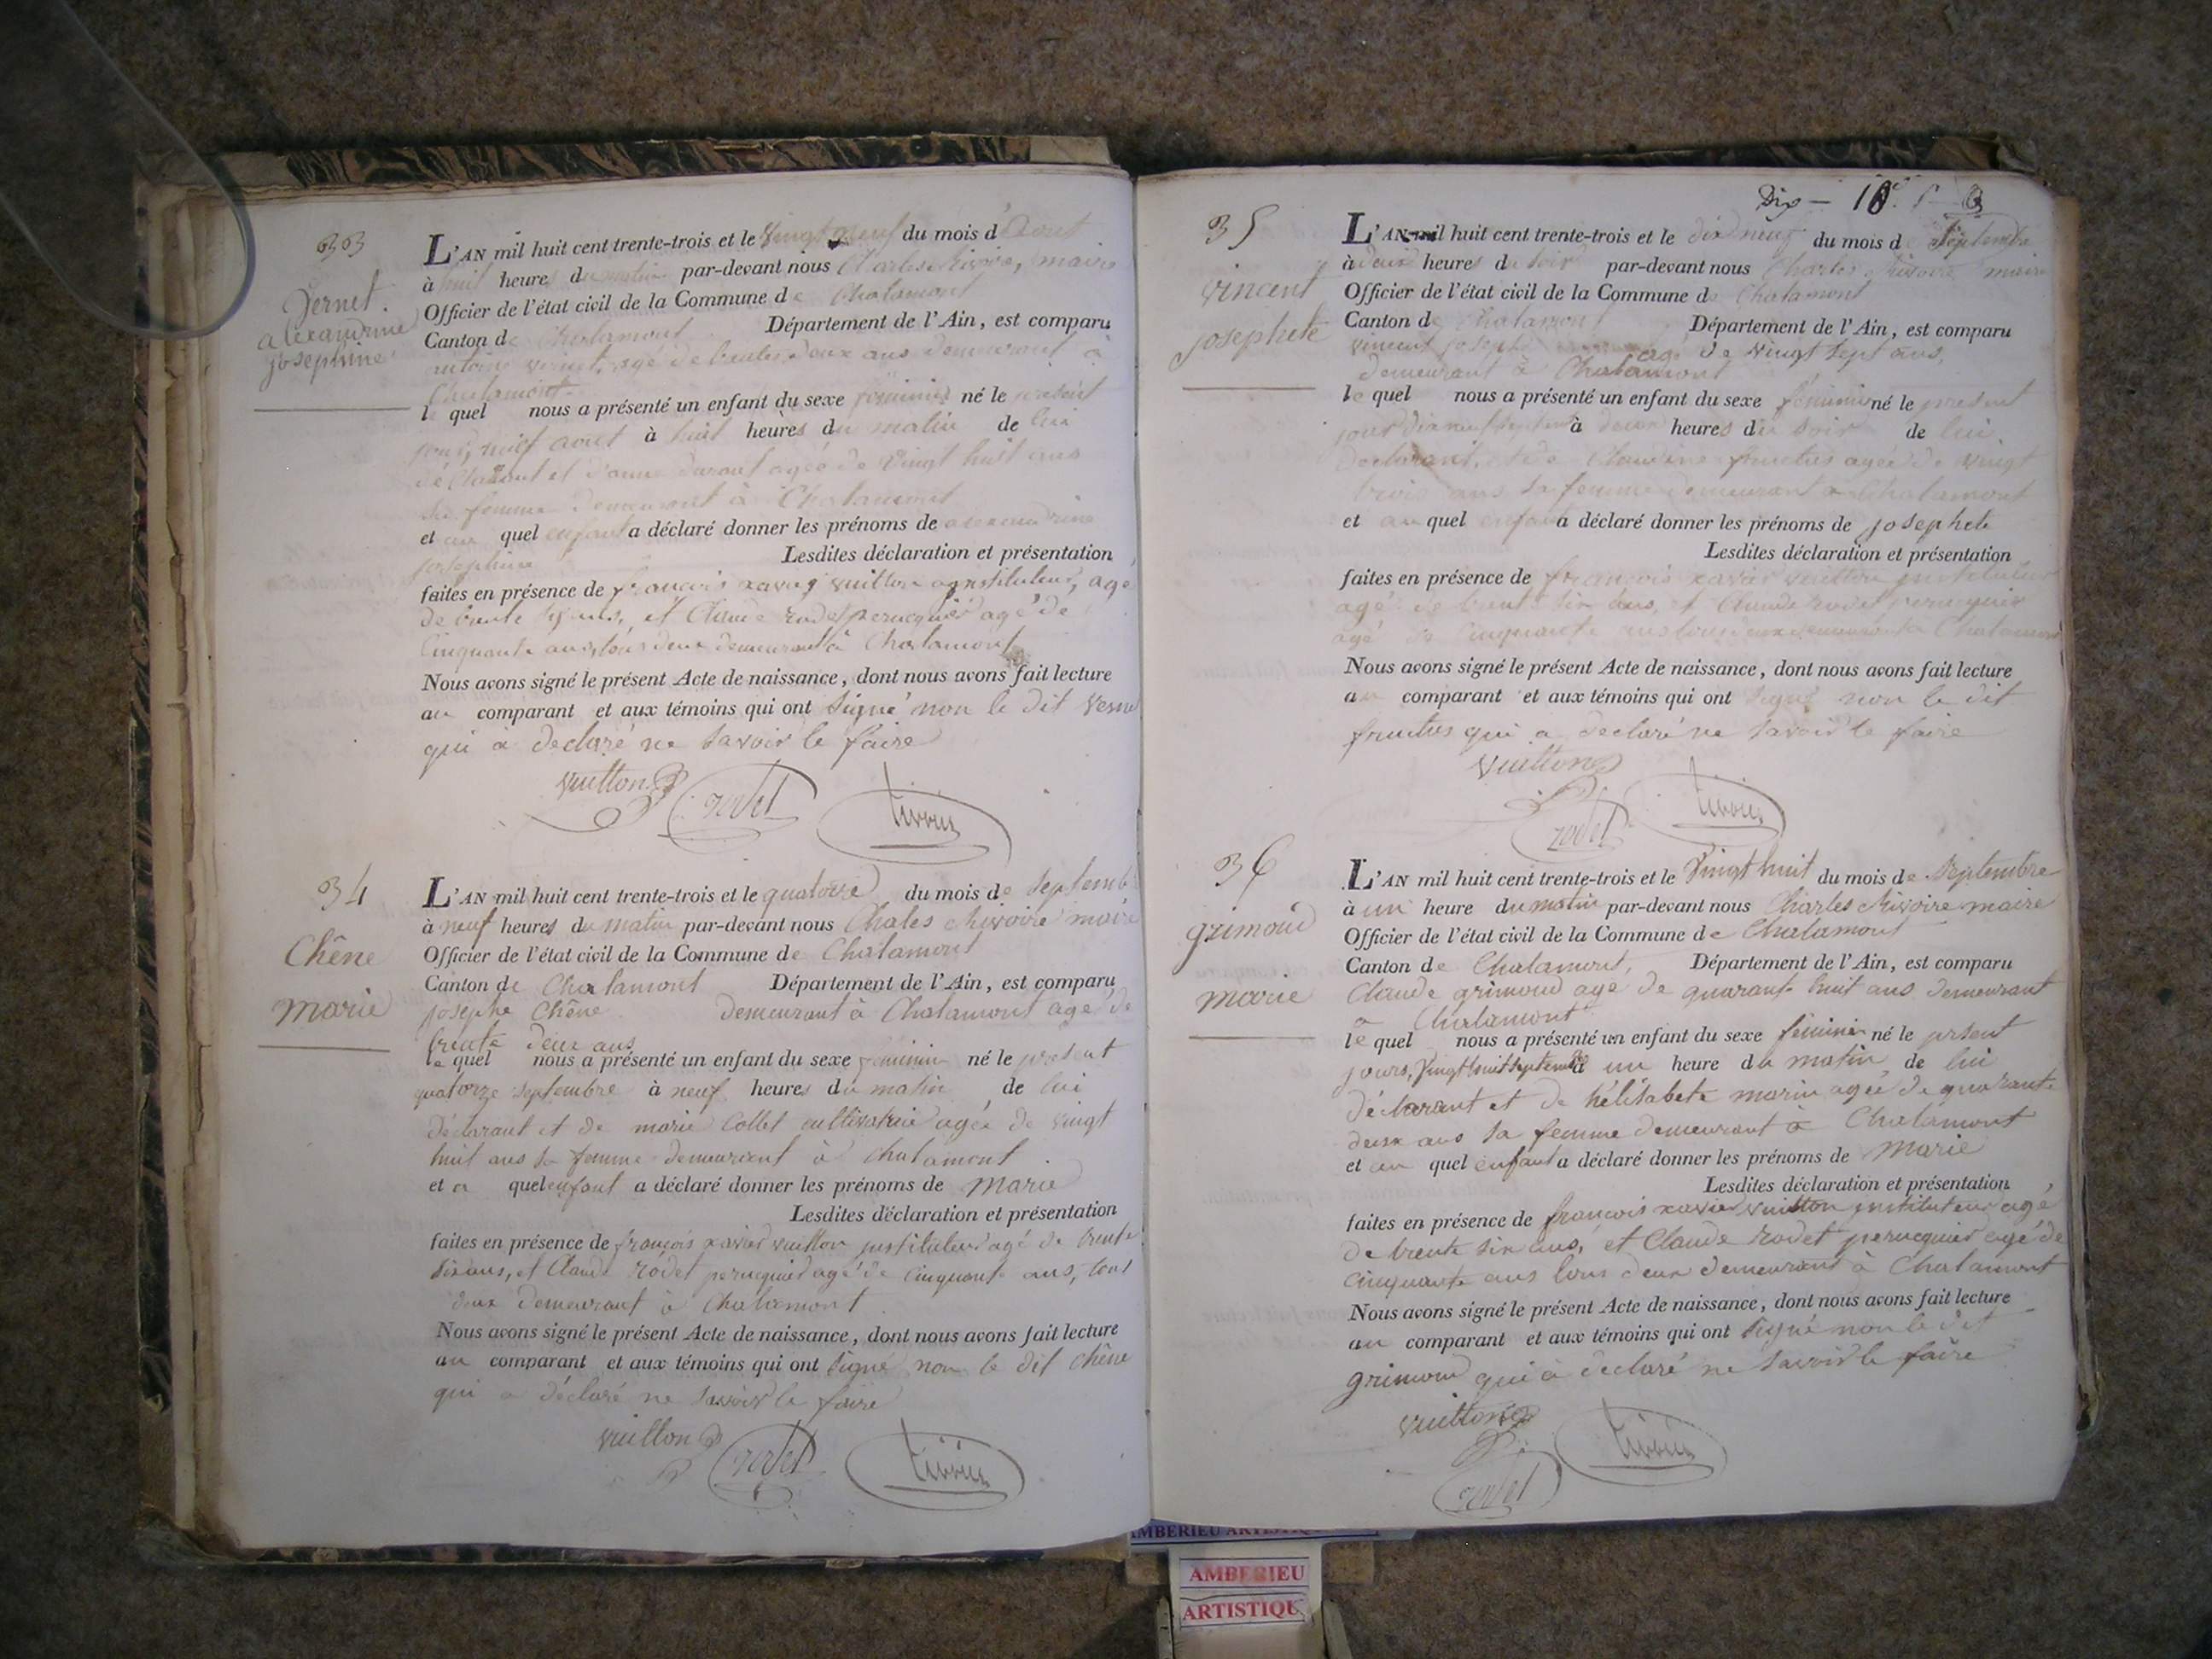 33
Vernet.
alexandrine
josephine
L'AN mil huit cent trente-trois et le Vingt neuf du mois d'Aout
à huit heures du matin par-devant nous Charles Rivoire, maire
Officier de l'état civil de la Commune de Chalamont
Canton de Chalamont Département de l'Ain, est comparu
antoine vernet, agé de trente deux ans demeurant à
Chalamont
le quel nous a présenté un enfant du sexe féminin né le présent
jour, neuf aout à huit heures du matin de lui
déclarant et d'anne durant agée de Vingt huit ans
sa femme demeurant à Chalamont
et au quel enfant a déclaré donner les prénoms de alexandrine
josephine Lesdites déclaration et présentation
faites en présence de francois xavier vuitton instituteur, agé
de trente six ans, et Claude rodet perucquier agé de
Cinquante ans, tous deux demeurant à Chalamont
Nous avons signé le présent Acte de naissance, dont nous avons fait lecture
au comparant et aux témoins qui ont signé non le dit Verne
qui à declaré ne Savoir le faire
vuitton rodet
34
Chêne
marie
L'AN mil huit cent trente-trois et le quatorze du mois de Septembre
à neuf heures du matin par-devant nous Chales Rivoire maire
Officier de l'état civil de la Commune de Chalamont
Canton de Chalamont Département de l'Ain, est comparu
josephe Chêne demeurant à Chalamont agé de
trente deux ans
le quel nous a présenté un enfant du sexe féminin né le présent
quatorze septembre à neuf heures du matin de lui
Déclarant et de marie Collet cultivatrice agée de vingt
huit ans sa femme demeurant à chalamont
et a quel enfant a déclaré donner les prénoms de Marie
Lesdites déclaration et présentation
faites en présence de françois xavier vuitton justituteur agé de trente
six ans, et Claude rodet perucquier agé de cinquante ans, tous
deux demeurant à Chalamont
Nous avons signé le présent Acte de naissance, dont nous avons fait lecture
au comparant et aux témoins qui ont signé non le dit chêne
qui a déclaré ne savoir le faire
vuitton rodet
Dix — 10
35
vincent
josephete
L'AN mil huit cent trente-trois et le dix neuf du mois de Septembre
à deux heures du soir par-devant nous Charles Rivoire maire
Officier de l'état civil de la Commune de Chalamont
Canton de Chalamont Département de l'Ain, est comparu
vincent josephe agé de vingt sept ans,
demeurant à Chalamont
le quel nous a présenté un enfant du sexe féminin né le present
jour dix neuf septembre à deux heures du soir de lui
Déclarant, et de Claudine fructus agée de vingt
trois ans sa femme demeurant à Chalamont
et au quel enfant a déclaré donner les prénoms de josephete
Lesdites déclaration et présentation
faites en présence de francois xavier vuitton instituteur
agé de trente six ans, et Claude rodet perucquier
agé de cinquante ans tous deux demeurant à Chalamont
Nous avons signé le présent Acte de naissance, dont nous avons fait lecture
au comparant et aux témoins qui ont signé non le dit
fructus qui a declaré ne savoir le faire
vuitton
rodet
36
grimoud
marie
L'AN mil huit cent trente-trois et le Vingt huit du mois de Septembre
à un heure du matin par-devant nous Charles Rivoire maire
Officier de l'état civil de la Commune de Chalamont
Canton de Chalamont, Département de l'Ain, est comparu
Claude grimoud agé de quarante huit ans demeurant
à Chalamont
le quel nous a présenté un enfant du sexe féminin né le prsent
jours, Vingt huit septembre à un heure du matin de lui
déclarant et de hélisabete marin agée de quarante
deux ans sa femme demeurant à Chalamont
et au quel enfant a déclaré donner les prénoms de Marie
Lesdites déclaration et présentation
faites en présence de francois xavier vuitton instituteur agé
de trente six ans, et Claude rodet perucquier agé de
cinquante ans tous deux demeurant à Chalamont
Nous avons signé le présent Acte de naissance, dont nous avons fait lecture
au comparant et aux témoins qui ont signé non le dit
grimoud qui à declaré ne savoir le faire
vuitton
rodet
AMBERIEU ARTISTIQUE
AMBERIEU
ARTISTIQUE